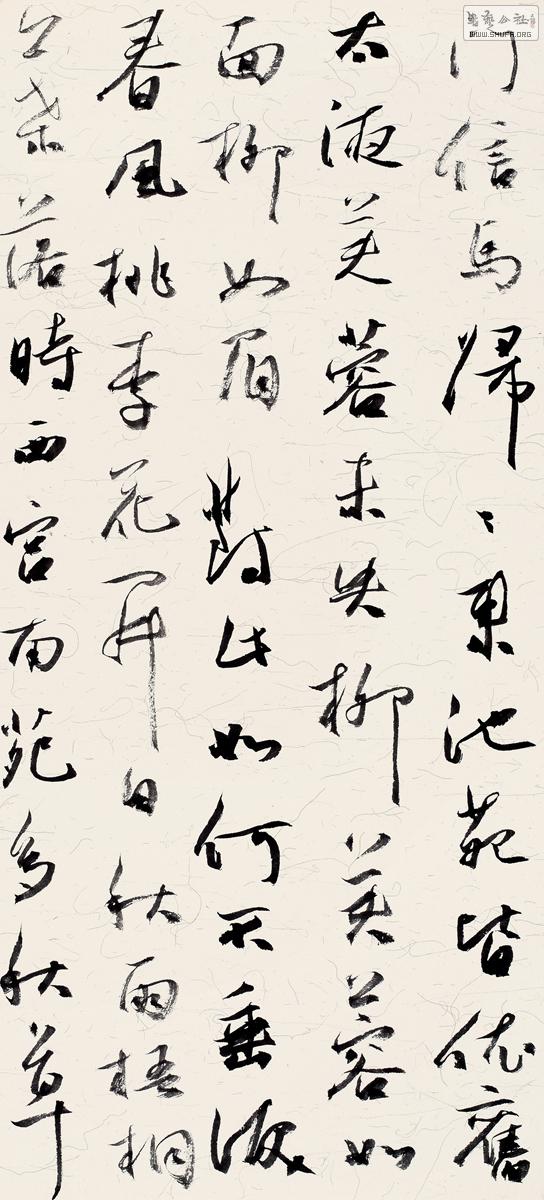 門信馬歸〻來池苑皆依舊
太液芙蓉未央柳芙蓉如
面柳如眉對此如何不垂淚
春風桃李花開日秋雨梧桐
葉落時西宮南苑多秋草
書藝公社
WWW.SHUFA.ORG